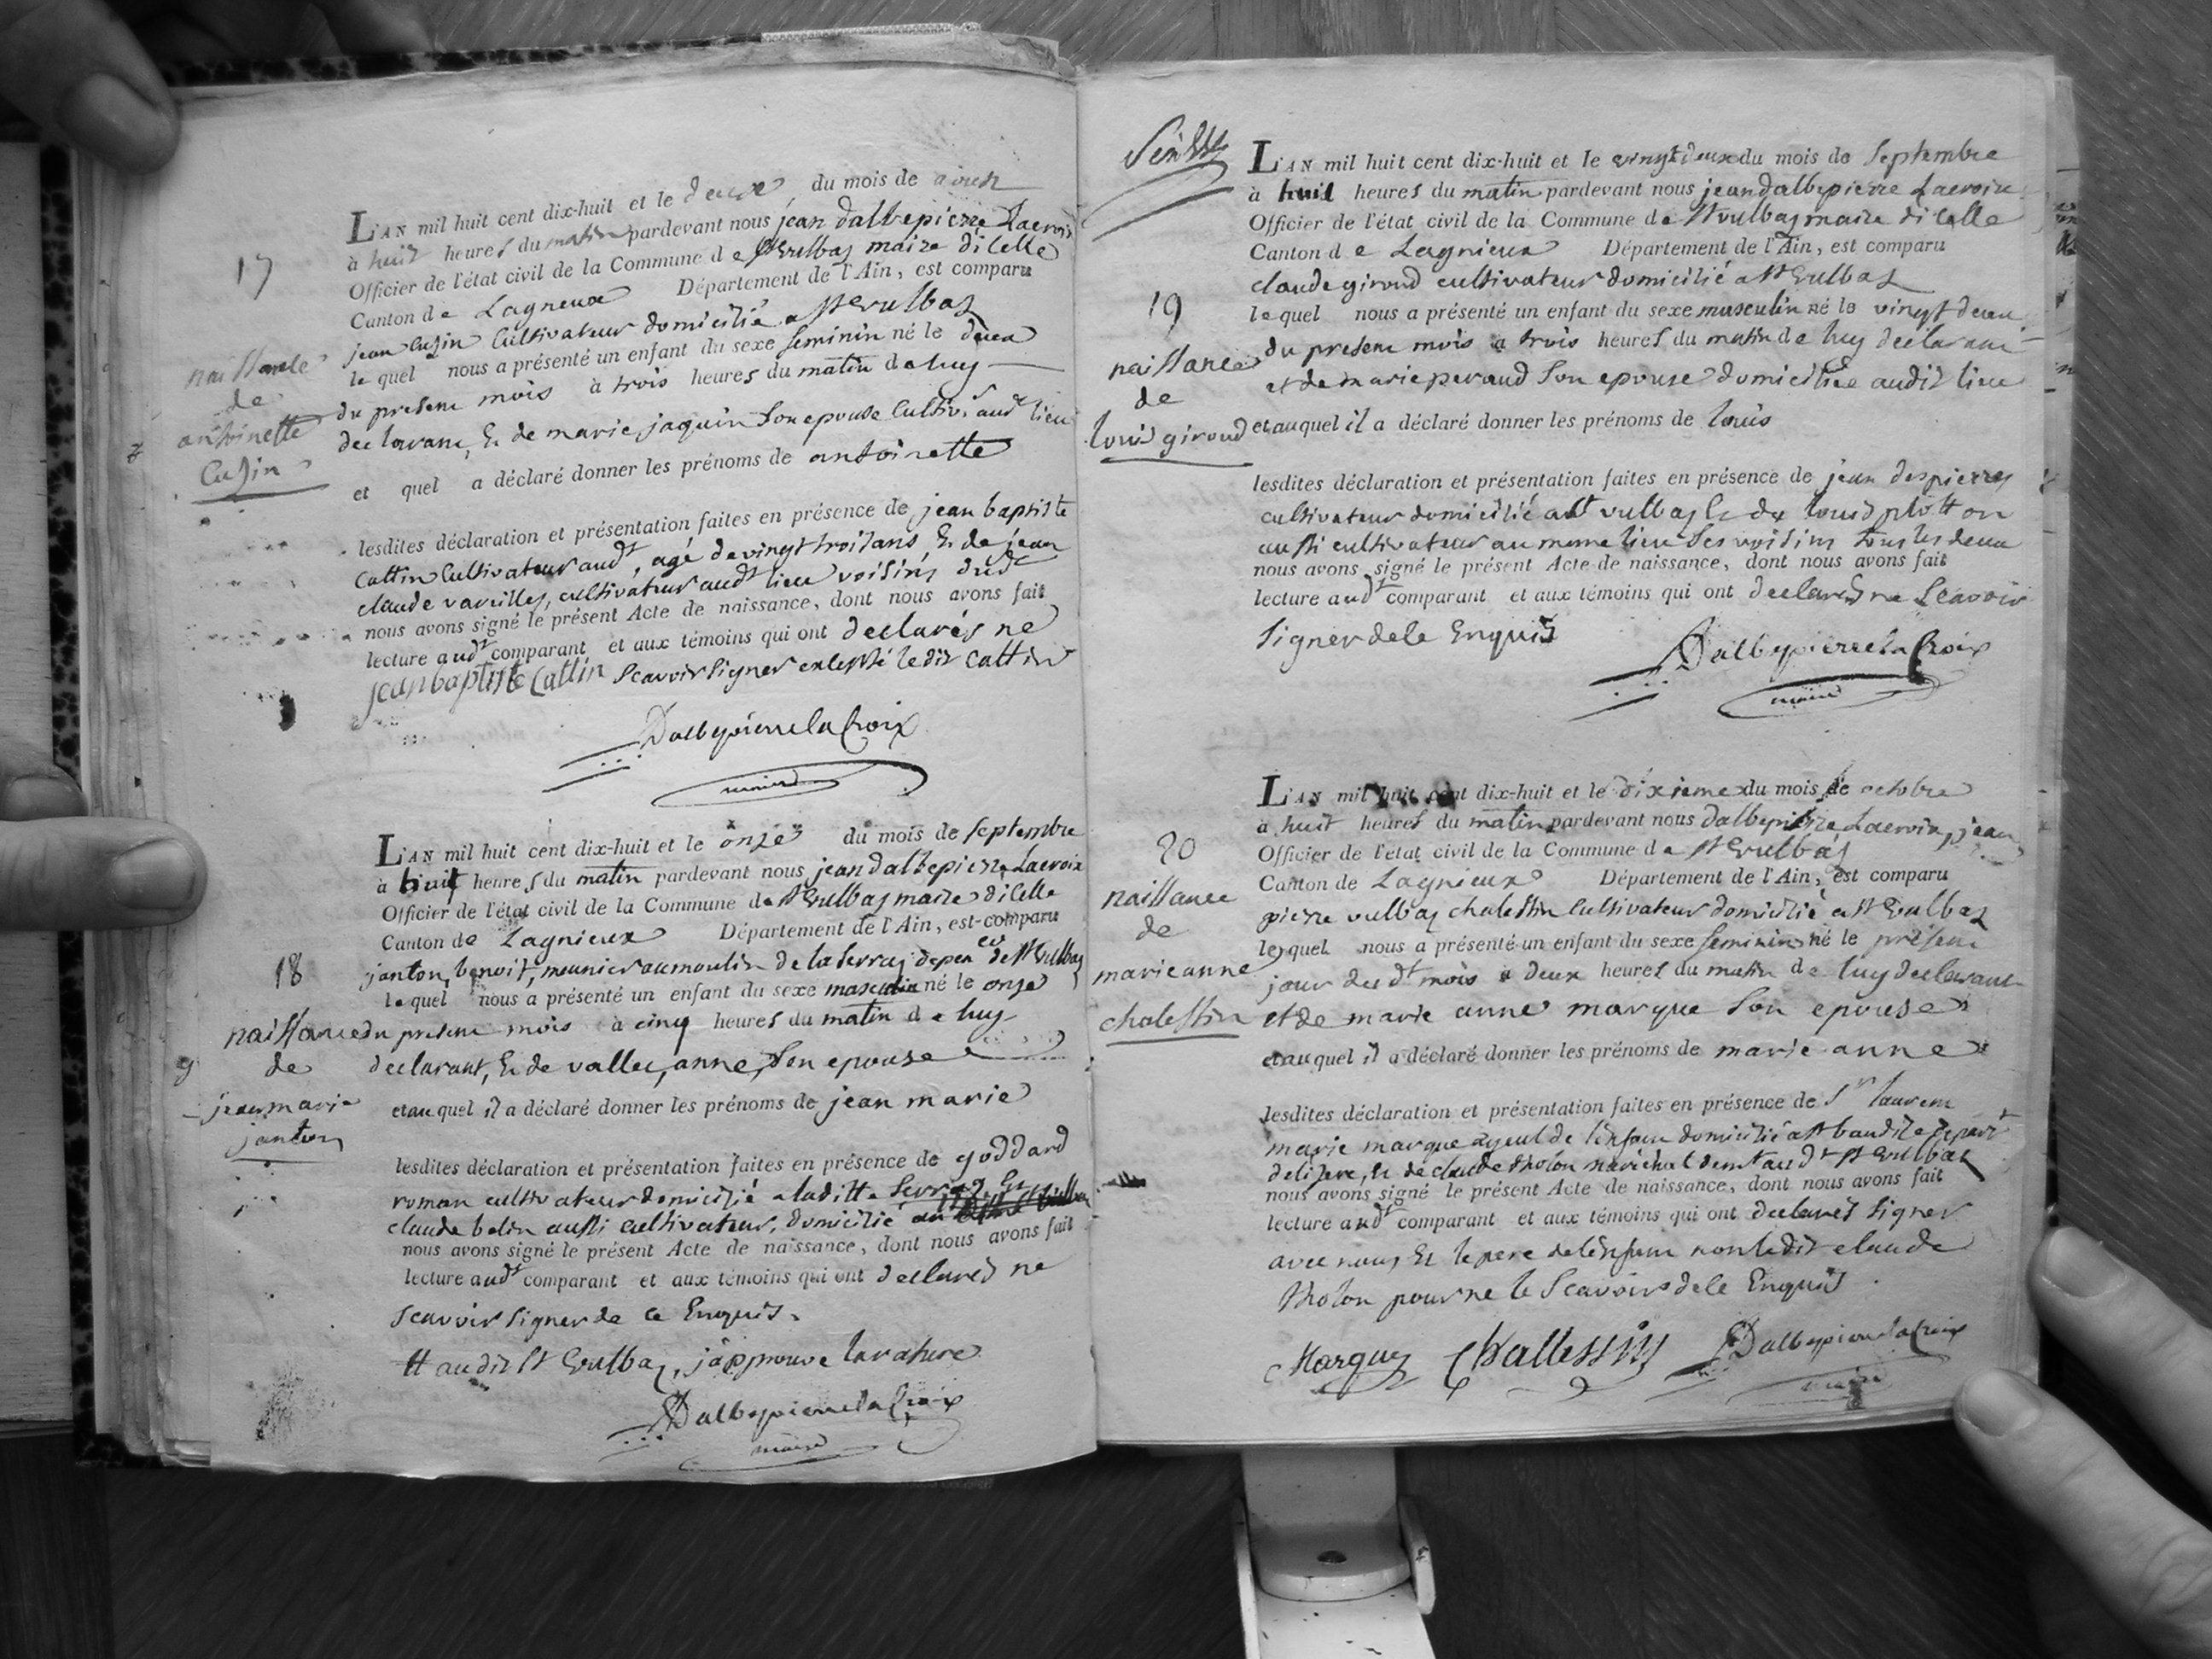 17
naissance
de
antoinette
Cuzin
L'AN mil huit cent dix-huit et le deux du mois de aoust
à huit heures du matin pardevant nous jean dalbepierre Lacroix
Officier de l'état civil de la Commune de St Vulbas maire dicelle
Canton de Lagneux Département de l'Ain, est comparu
jean Cuzin Cultivateur domicilié a St Vulbas
lequel nous a présenté un enfant du sexe feminin né le deux
du present mois à trois heures du matin de luy
declarant, & de marie jaquin Son epouse Cultivr audt lieu
et quel a déclaré donner les prénoms de antoinette
lesdites déclaration et présentation faites en présence de jean baptiste
Cattin Cultivateur audt, agé de vingt trois ans, & de jean
claude vareilles, cultivateur audt lieu voisins dudt
nous avons signé le présent Acte de naissance, dont nous avons fait
lecture audt comparant et aux témoins qui ont declarés ne
Scavoir Signer excepté ledit Cattin
jean baptiste Cattin
Dalbepierre la Croix
maire
18
naissance
de
jean marie
janton
L'AN mil huit cent dix-huit et le onze du mois de Septembre
à huit heures du matin pardevant nous jean dalbepierre Lacroix
Officier de l'état civil de la Commune de St Vulbas maire dicelle
Canton de Lagnieux Département de l'Ain, est comparu
janton, benoit, meunier au moulin de la Serraz depce de St Vulbas
lequel nous a présenté un enfant du sexe masculin né le onze
du present mois à cinq heures du matin de luy
declarant, & de vallet, anne, Son epouse
et auquel il a déclaré donner les prénoms de jean marie
lesdites déclaration et présentation faites en présence de goddard
roman cultivateur domicilié a laditte Serraz, &
claude belin aussi cultivateur, domicilié
nous avons signé le présent Acte de naissance, dont nous avons fait
lecture audt comparant et aux témoins qui ont declarés ne
Scavoir Signer de ce Enquis.
# audit St Vulbas, j'approuve la rature
Dalbepierre la Croix
maire
19
naissance
de
louis giroud
L'AN mil huit cent dix-huit et le vingt deux du mois de Septembre
à huit heures du matin pardevant nous jean dalbepierre Lacroix
Officier de l'état civil de la Commune de St Vulbas maire dicelle
Canton de Lagnieux Département de l'Ain, est comparu
claude giroud cultivateur domicilié a St Vulbas
lequel nous a présenté un enfant du sexe masculin né le vingt deux
du present mois à trois heures du matin de luy declarant
et de marie peraud Son epouse domiciliée audit lieu
et auquel il a déclaré donner les prénoms de louis
lesdites déclaration et présentation faites en présence de jean despierres
cultivateur domicilié a St Vulbas & de louis plotton
aussi cultivateur au meme lieu Ses voisins tous les deux
nous avons signé le présent Acte de naissance, dont nous avons fait
lecture audt comparant et aux témoins qui ont declarés ne Scavoir
Signer de ce Enquis
Dalbepierre la Croix
maire
20
naissance
de
marie anne
chalessin
L'AN mil huit cent dix-huit et le dixieme du mois de octobre
à huit heures du matin pardevant nous dalbepierre Lacroix, jean
Officier de l'état civil de la Commune de St Vulbas
Canton de Lagnieux Département de l'Ain, est comparu
pierre vulbas chalessin Cultivateur domicilié a St Vulbas
lequel nous a présenté un enfant du sexe feminin né le présent
jour dudt mois à deux heures du matin de luy declarant
et de marie anne marque Son epouse
et auquel il a déclaré donner les prénoms de marie anne
lesdites déclaration et présentation faites en présence de Sr laurent
marie marque ayeul de lenfant domicilié a St baudile depart
delisere, & de claude tholon marechal demt audt St Vulbas
nous avons signé le présent Acte de naissance, dont nous avons fait
lecture audt comparant et aux témoins qui ont declarés Signer
avec nous & le pere de lenfant non ledit claude
tholon pour ne le Scavoir de ce Enquis
Marque Challessin Dalbepierre la Croix
maire